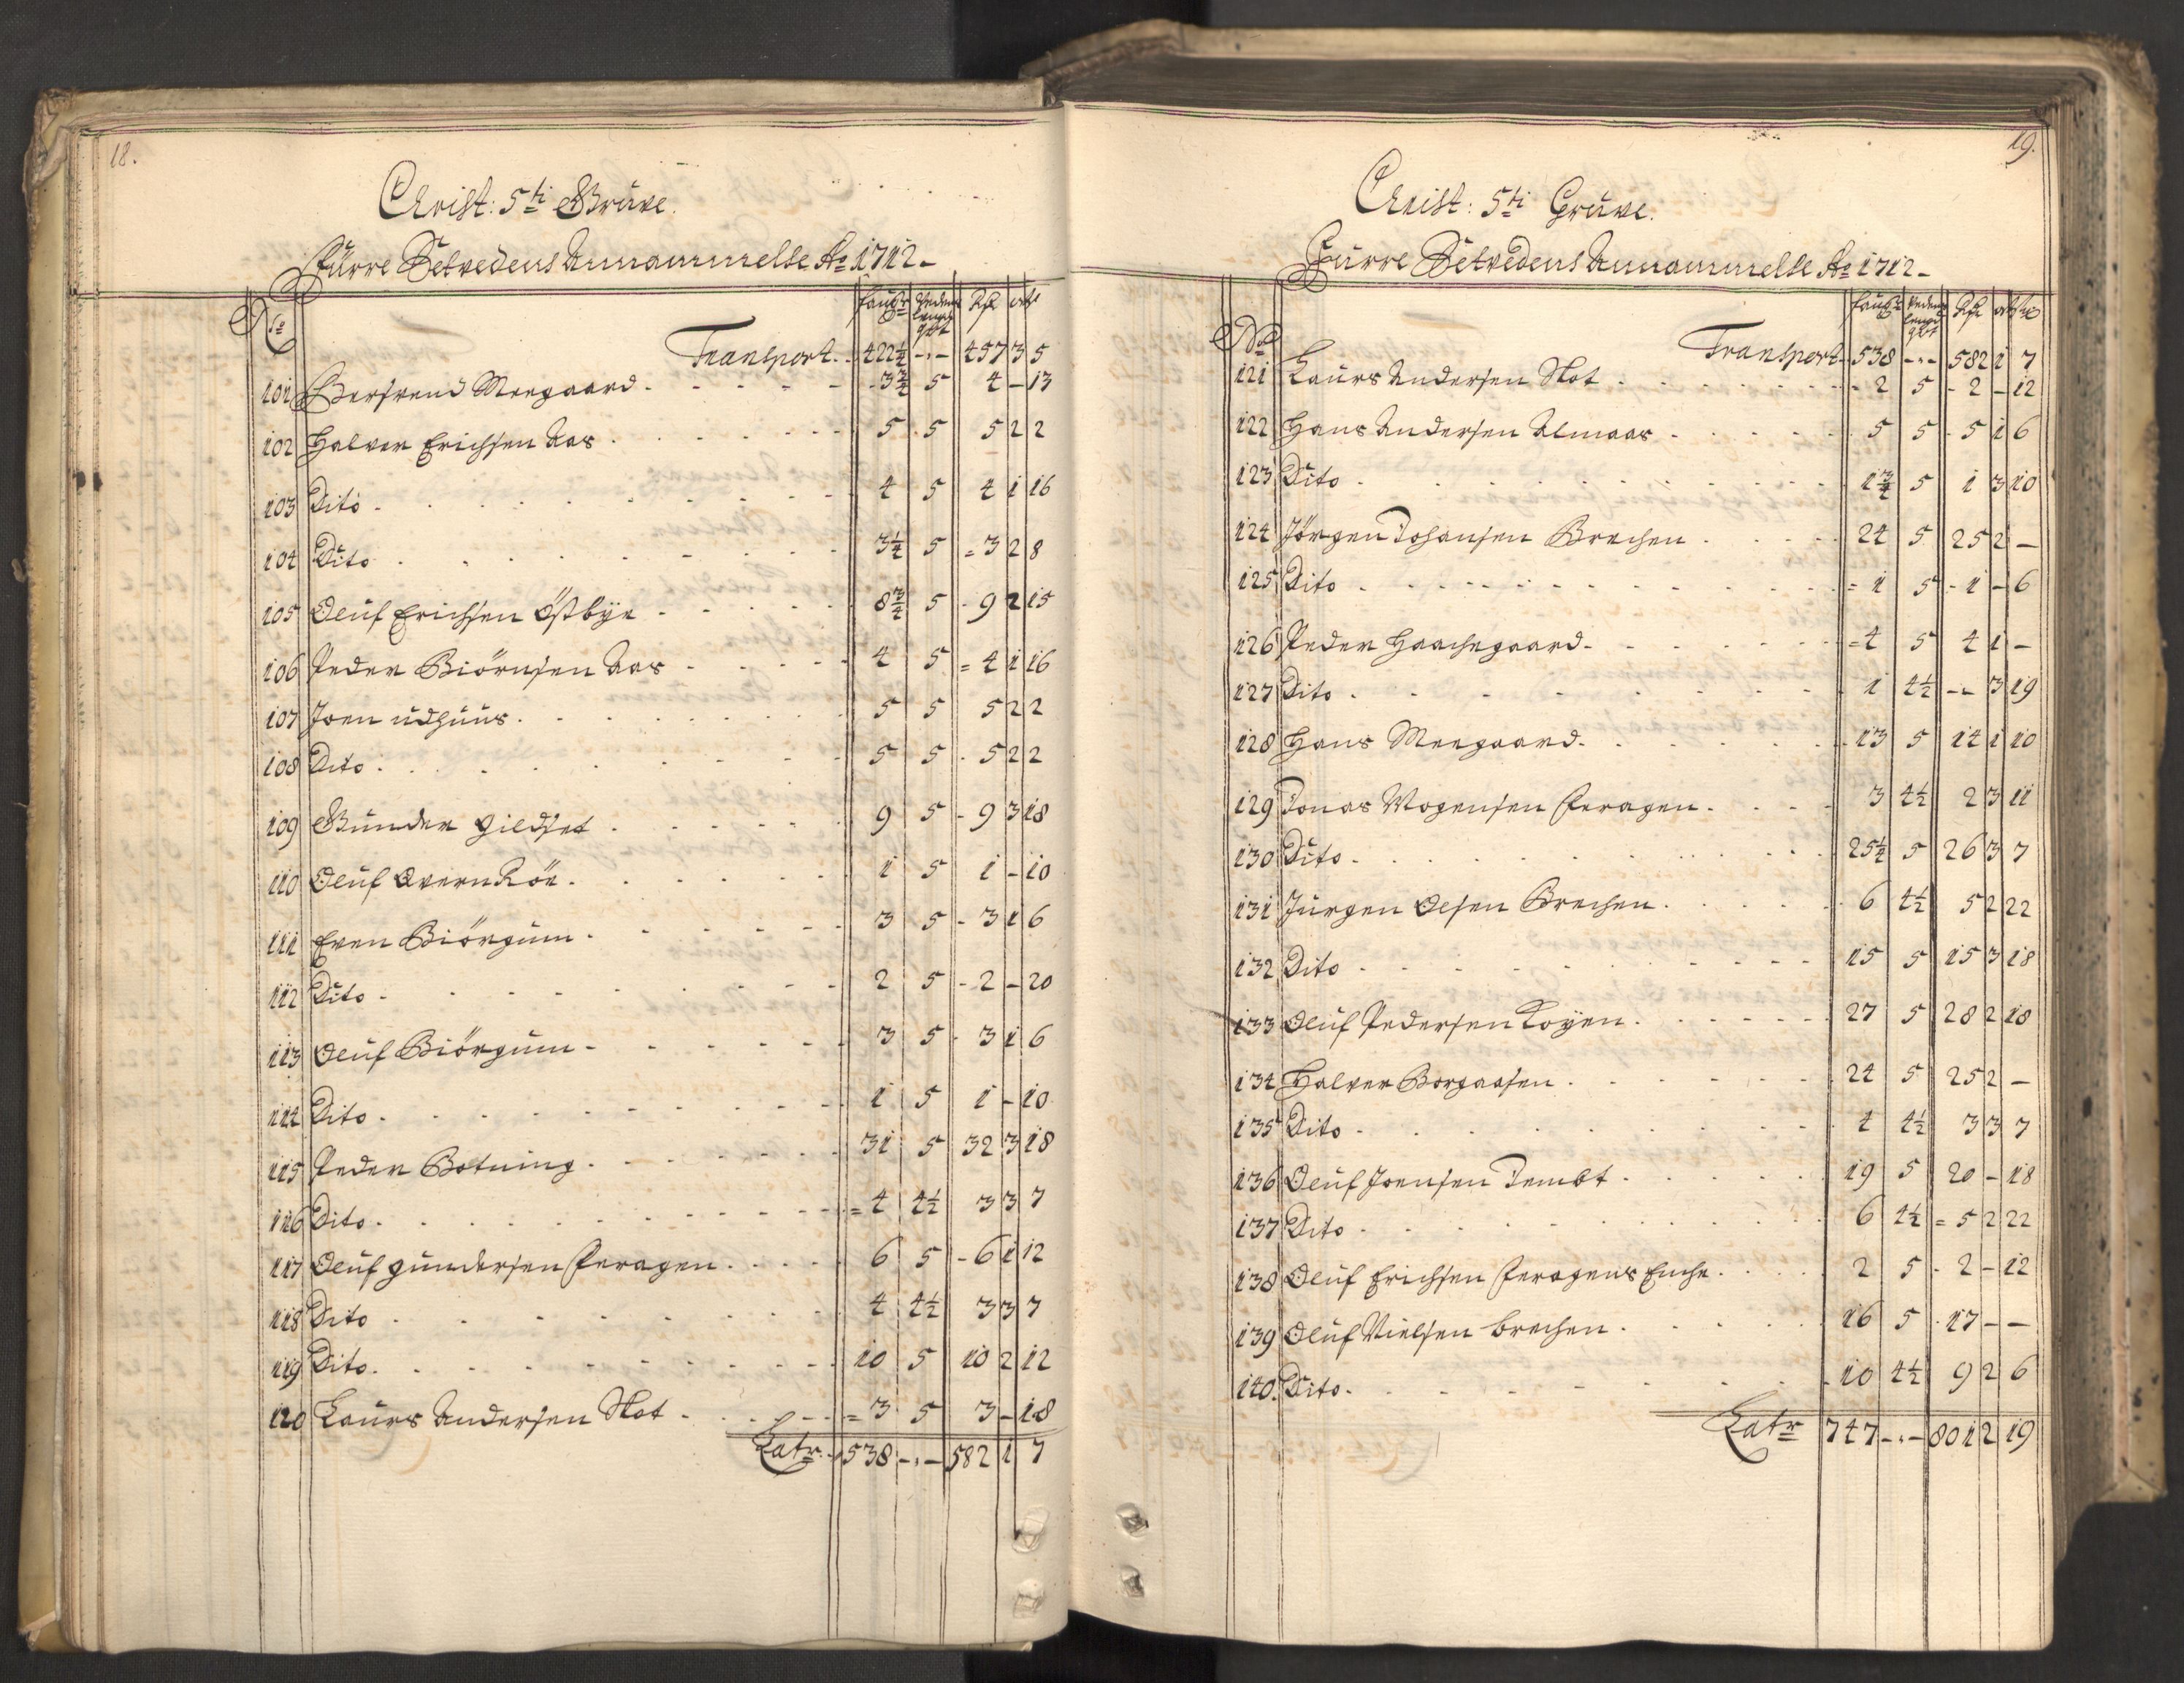 18.
Christ: 5ti Gruve.
Furre Setvedens Annammelse Ao 1712 -
No Faufn Vedens lengd qvt Rdr ort s
Transport. 422 1/4 - - 457 3 5
101 Morgaard 3 3/4 5 4 - 13
102 Halvor Erichsen Aas 5 5 5 2 2
103 Dito 4 5 4 1 16
104 Dito 3 1/4 5 3 2 8
105 Oluf Erichsen Östbye 8 3/4 5 9 2 15
106 Peder Biörnsen Aas 4 5 4 1 16
107 Joen udhuus 5 5 5 2 2
108 Dito 5 5 5 2 2
109 Gunder Gildset 9 5 9 3 18
110 Oluf 1 5 1 - 10
111 Even Biörgum 3 5 3 1 6
112 Dito 2 5 2 - 20
113 Oluf Biörgum 3 5 3 1 6
114 Dito 1 5 1 - 10
115 Peder Botning 31 5 32 3 18
116 Dito 4 4 1/2 3 3 7
117 Oluf Gundersen Feragen 6 5 6 1 12
118 Dito 4 4 1/2 3 3 7
119 Dito 10 5 10 2 12
120 Laurs Andersen Slot 3 5 3 - 18
Latr 538 - - 582 1 7
19.
Christ: 5ti Gruve.
Furre Setvedens Annammelse Ao 1712 -
No Vedens lengd qvt Rdr ort s
Transport 538 - - 582 1 7
121 Laurs Andersen Slot 2 5 2 - 12
122 Hans Andersen Almaas 5 5 5 1 6
123 Dito 1 3/4 5 1 3 10
124 Jörgen Johansen Brechen 24 5 25 2 -
125 Dito 1 5 1 - 6
126 Peder Haachegaard 4 5 4 1 -
127 Dito 1 4 1/2 - 3 19
128 Hans Morgaard 13 5 14 1 10
129 Jonas Mogensen Feragen 3 4 1/2 2 3 11
130 Dito 25 1/4 5 26 3 7
131 Jürgen Olsen Brechen 6 4 1/2 5 2 22
132 Dito 15 5 15 3 18
133 Oluf Pedersen Koyen 27 5 28 2 18
134 Halvor Borgaasen 24 5 25 2 -
135 Dito 4 4 1/2 3 3 7
136 Oluf Joensen Tembt 19 5 20 - 18
137 Dito 6 4 1/2 5 2 22
138 Oluf Erichsen Feragens Enche 2 5 2 - 12
139 Oluf Nielsen brechen 16 5 17 - -
140. Dito 10 4 1/2 9 2 6
Latr 747 - - 801 2 19